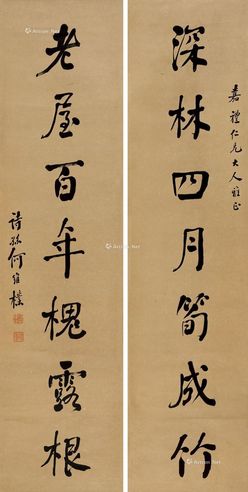 嘉礼仁兄大人雅正
深林四月筍成竹
老屋百年槐露根
詩孫何維樸